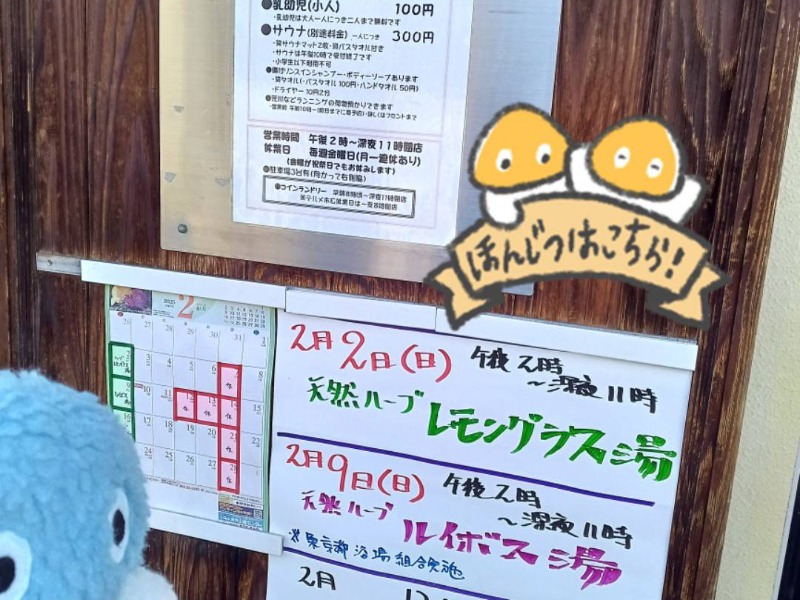 ●乳幼児(小人) 100円
・乳幼児は大人一人につき二人まで無料です
●サウナ(別途料金) 一人につき 300円
・サウナは午後10時で受付終了です
・小学生以下利用不可
●備付リンスインシャンプー・ボディーソープあります
・貸タオル(・バスタオル 100円・ハンドタオル 50円)
・ドライヤー 10円2台
営業時間 午後2時～深夜11時閉店
休業日 毎週金曜日(月一連休あり)
(金曜が祝祭日でもお休みします)
●コインランドリー
ほんじつはこちら!
2025 2
26 27 28 29 30 31 1
3 4 5 6 7休 8
9 10 11 12休 13休 14休 15
16 17 18 19 20 21休 22
24 25 26 27 28休
2月2日(日) 午後2時
～深夜11時
天然ハーブ レモングラス湯
2月9日(日) 午後2時
～深夜11時
天然ハーブ ルイボス湯
※東京都浴場組合実施
2月